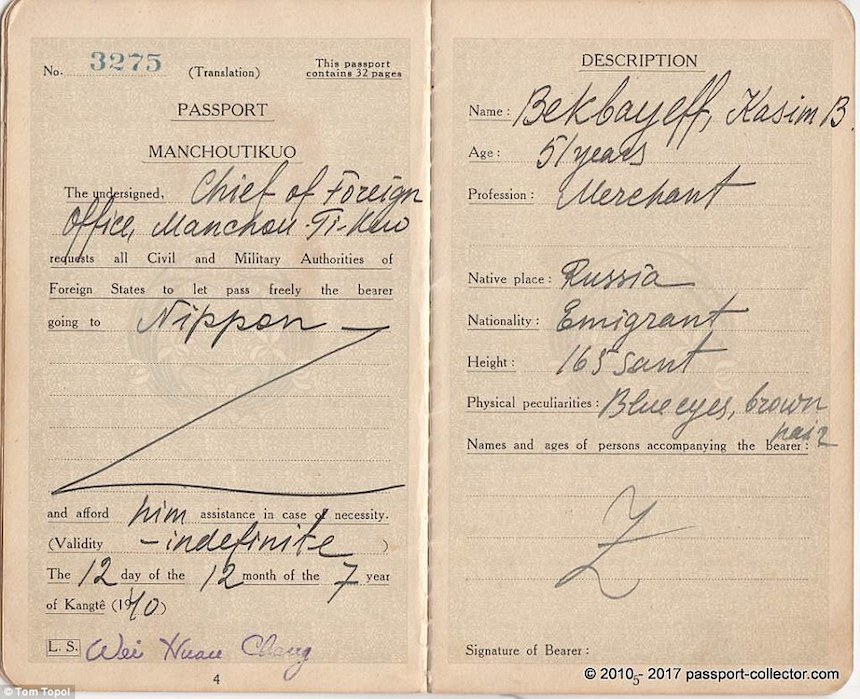 No. 3275 (Translation) This passport
contains 32 pages
PASSPORT
MANCHOUTIKUO
The undersigned, Chief of Foreign
Office, Manchou-Ti-Kuo
requests all Civil and Military Authorities of
Foreign States to let pass freely the bearer
going to Nippon —
and afford him assistance in case of necessity.
(Validity - indefinite )
The 12 day of the 12 month of the 7 year
of Kangtê (1940)
L. S. Wei Huan Chang
4
DESCRIPTION
Name : Bekbayeff, Kasim B.
Age : 51 years
Profession : Merchant
Native place : Russia
Nationality : Emigrant
Height : 165 sant
Physical peculiarities : Blue eyes, brown
hair
Names and ages of persons accompanying the bearer :
Z
Signature of Bearer :
5
© Tom Topol
© 2010 - 2017 passport-collector.com